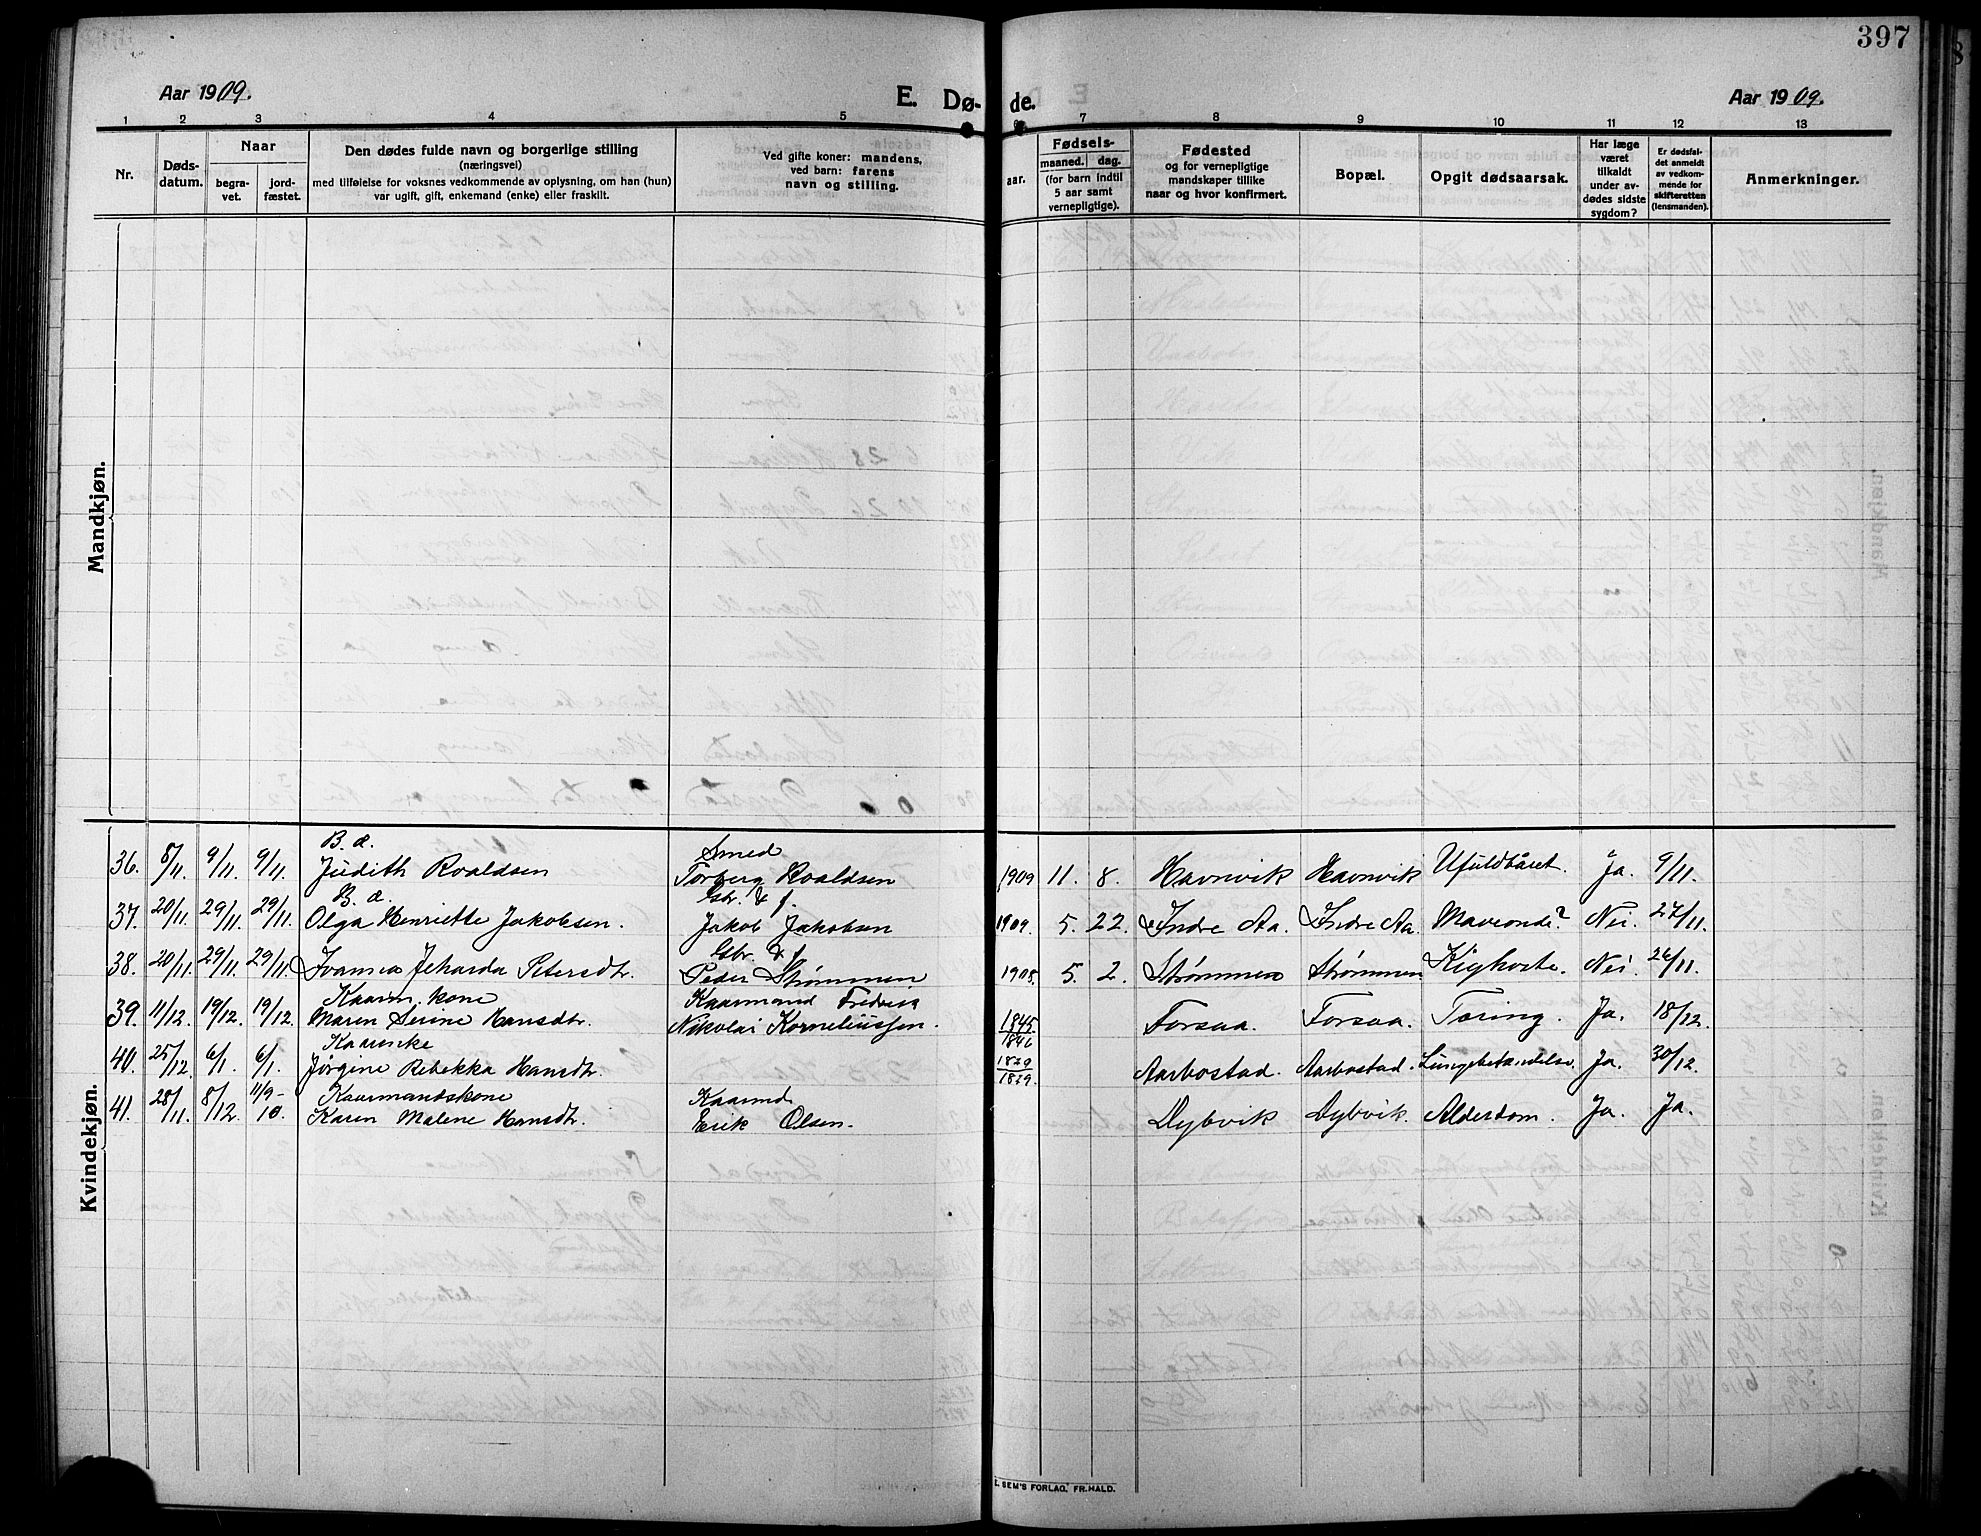 397
Aar 1909.
E. Dø- de.
Aar 1909.
1 2 3 4 5 6 7 8 9 10 11 12 13
Nr.
Døds-
datum.
Naar
begra-
vet.
jord-
fæstet.
Den dødes fulde navn og borgerlige stilling
(næringsvei)
med tilføielse for voksnes vedkommende av oplysning, om han (hun)
var ugift, gift, enkemand (enke) eller fraskilt.
Ved gifte koner: mandens,
ved barn: farens
navn og stilling.
aar.
Fødsels-
maaned. dag.
(for barn indtil
5 aar samt
vernepligtige).
Fødested
og for vernepligtige
mandskaper tillike
naar og hvor konfirmert.
Bopæl.
Opgit dødsaarsak.
Har læge
været
tilkaldt
under av-
dødes sidste
sygdom?
Er dødsfal-
det anmeldt
av vedkom-
mende for
skifteretten
(lensmanden).
Anmerkninger.
Mandkjøn.
Kvindekjøn.
B. æ. Smed
36. 8/11. 9/11. 9/11. Judith Roaldsen Torberg Roaldsen 1909 11. 8. Havnvik Havnvik Ufuldbåret. Ja. 9/11.
B. æ. Gbr. & f.
37. 20/11. 29/11. 29/11. Olga Henriette Jakobsen. Jakob Jakobsen 1909. 5. 22. Indre Aa. Indre Aa. Maveonde? Nei. 27/11.
Gbr. & f
38. 20/11. 29/11. 29/11. Petersdtr. Peder Strømmen 1908. 5. 2. Strømmen Strømmen Kighoste. Nei. 26/11.
Kaarm. kone Kaarmand Fredrik
39. 11/12. 19/12. 19/12. Maren Serine Hansdtr. Nikolai Korneliussen. 1845 1846 Forsaa. Forsaa. Tæring. Ja. 18/12.
Kaarenke
40. 25/12. 6/1. 6/1. Jørgine Rebekka Hansdtr. 1829 1829. Aarbostad. Aarbostad. Lungebetændelse. Ja. 30/12.
Kaarmandskone Kaarmd
41. 28/11. 8/12. 11/9-10. Karen Malene Hansdtr. Erik Olsen. Dybvik Dybvik. Alderdom. Ja. Ja.
SEM'S FORLAG, FR.HALD.